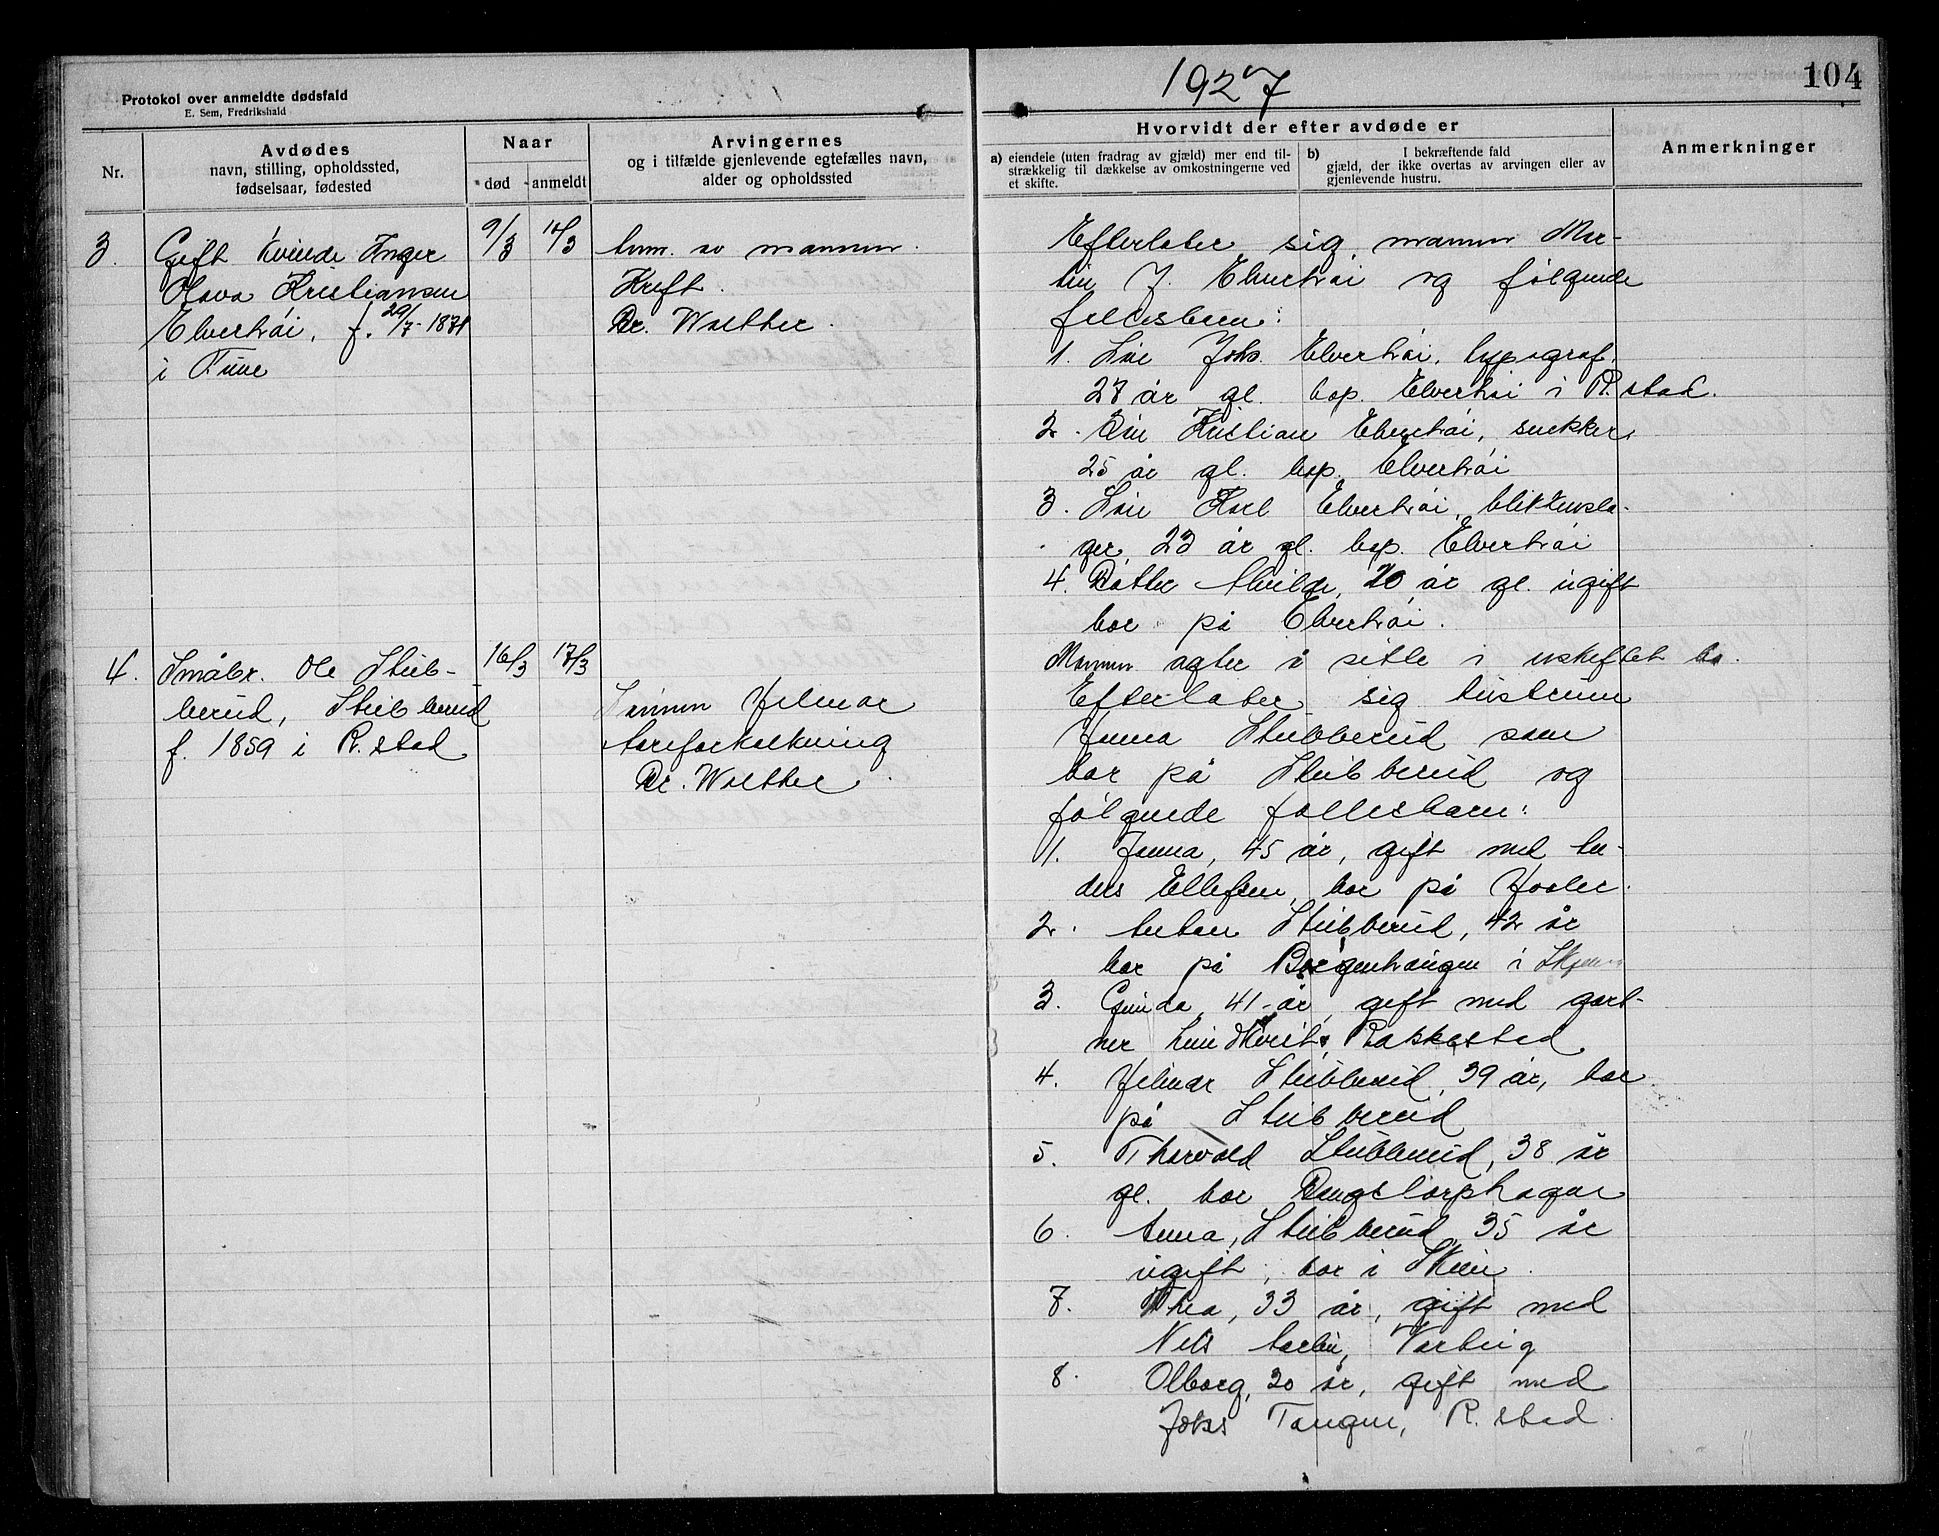 1927
104
Protokol over anmeldte dødsfald
E. Sem, Fredrikshald
Nr.
Avdødes
navn, stilling, opholdssted,
fødselsaar, fødested
Naar
død
anmeldt
Arvingernes
og i tilfælde gjenlevende egtefælles navn,
alder og opholdssted
Hvorvidt der efter avdøde er
a) eiendele (uten fradrag av gjæld) mer end til-
strækkelig til dækkelse av omkostningerne ved
et skifte.
b) I bekræftende fald
gjæld, der ikke overtas av arvingen eller av
gjenlevende hustru.
Anmerkninger
3.
Gift kvinde Inger
Olava Kristiansen
Elverhøi, f. 29/7-1871
i Tune
9/3
14/3
Anm. av mannen.
Kreft.
Dr. Walther.
Efterlater sig mannen Mar-
tin J. Elverhøi og følgende
fellesbarn:
1. Søn Joh. Elverhøi, typograf,
27 år gl. bop. Elverhøi i R.stad.
2. Søn Kristian Elverhøi, snekker,
25 år gl. bop. Elverhøi
3. Søn Karl Elverhøi, blikkensla-
ger 23 år gl. bop. Elverhøi
4. Datter 20 år gl. ugift
bor på Elverhøi.
Mannen agter å sitte i uskiftet bo.
4.
Småbr. Ole Stub-
berud, Stubberud
f. 1859 i R.stad
16/3
17/3
Sønnen Hilmar
Åreforkalkning
Dr. Walther
Efterlater sig hustruen
Jenna Stubberud som
bor på Stubberud og
følgende fellesbarn:
1. Janna, 45 år, gift med An-
ders Ellefsen, bor på Hosler.
2. Anton Stubberud, 42 år
bor på Borgenhaugen i
3. Gunda 41 år, gift med gart-
ner Rakkestad
4. Hilmar Stubberud, 39 år, bor
på Stubberud
5. Thorvald Stubberud, 38 år
gl. bor
6. Anna, Stubberud 35 år
ugift, bor i Skien.
7. Thea, 33 år, gift med
Nils Varteig
8. Olborg, 30 år, gift med
Johs Tangen, R.stad.